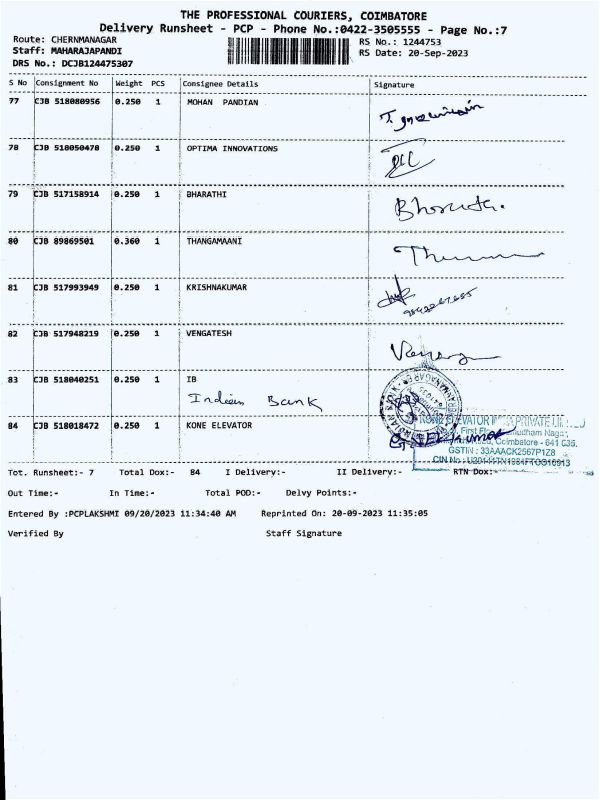 THE PROFESSIONAL COURIERS, COIMBATORE
Delivery Runsheet - PCP - Phone No.:0422-3505555 - Page No.:7
Route: CHERNMANAGAR
RS No.: 1244753
Staff: MAHARAJAPANDI
RS Date: 20-Sep-2023
DRS No.: DCJB124475307
S No Consignment No Weight PCS Consignee Details Signature
77 CJB 518080956 0.250 1 MOHAN PANDIAN
78 CJB 518050478 0.250 1 OPTIMA INNOVATIONS
79 CJB 517158914 0.250 1 BHARATHI
80 CJB 89869501 0.360 1 THANGAMAANI
81 CJB 517993949 0.250 1 KRISHNAKUMAR
82 CJB 517948219 0.250 1 VENGATESH
83 CJB 518040251 0.250 1 IB
Indian Bank
84 CJB 518018472 0.250 1 KONE ELEVATOR
KONE ELEVATOR PRIVATE
First
Coimbatore - 641
GSTIN : 33AAACK2567P1Z8
CIN No
Tot. Runsheet:- 7 Total Dox:- 84 I Delivery:- II Delivery:- RTN Dox:-
Out Time:- In Time:- Total POD:- Delvy Points:-
Entered By :PCPLAKSHMI 09/20/2023 11:34:40 AM Reprinted On: 20-09-2023 11:35:05
Verified By Staff Signature